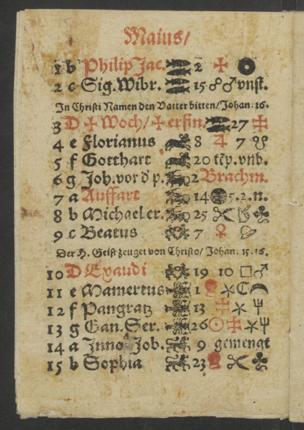 Maius/
1 b Philip Jac. 2
2 c Sig. Wibr. 15 ☍♂ vnst.
In Christi Namen den Vatter bitten/Johan: 16.
3 D Woch/ 27
4 e Florianus 8 ♃ 7 ☋
5 f Gotthart 20 vnb.
6 g Joh. vor d p. 2 Brachm.
7 a Auffart 14 5.2.n.
8 b Michael er. 25
9 c Beatus 7 ♀
Der H. Geist zeuget von Christo/ Johan. 15.16.
10 D Exaudi 19 10 □♂
11 e Mamertus 1
12 f Pangratz 13
13 g Gan. Ser. 26 ☉
14 a Inno. Job. 9 gemengt
15 b Sophia 23